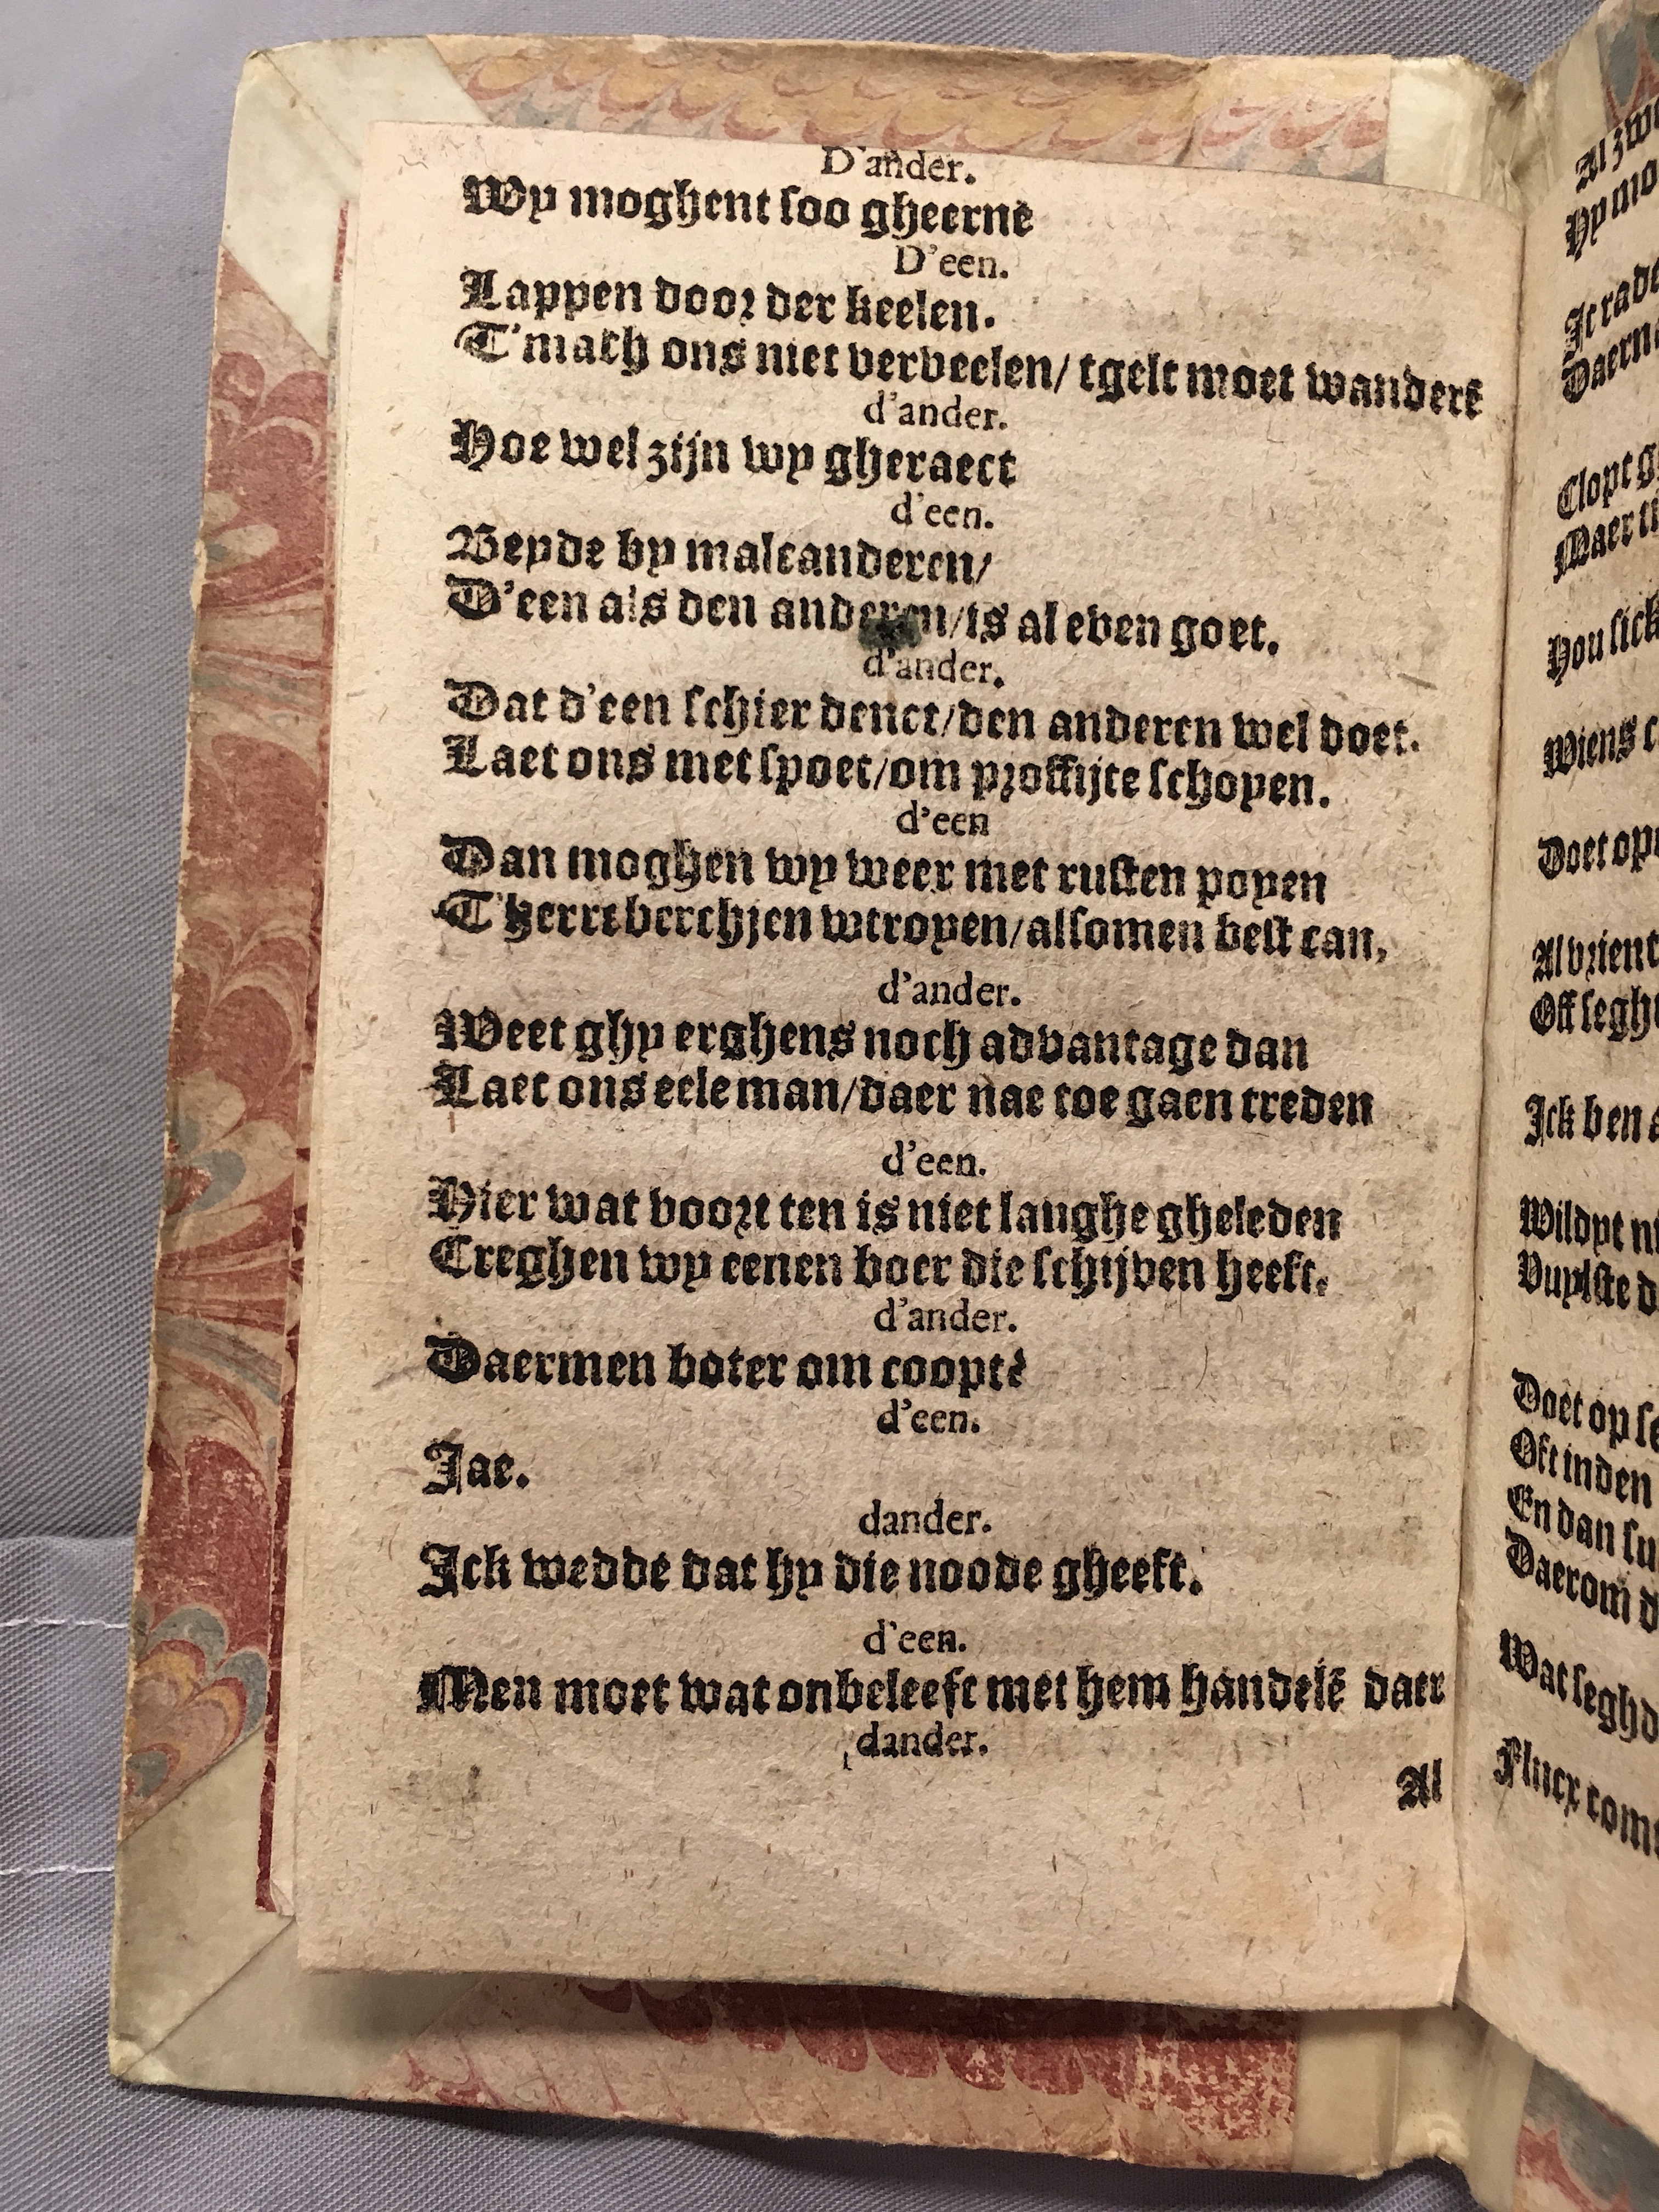 D'ander.
Wy moghent soo gheerne
D'een.
Lappen door der keelen.
T'mach ons niet verveelen/ tgelt moet wanderē
d'ander.
Hoe wel zijn wy gheraect
d'een.
Beyde by malcanderen/
D'een als den anderen/is al even goet.
d'ander.
Dat d'een schier denct/den anderen wel doet.
Laet ons met spoet/om proffijte schoyen.
d'een
Dan moghen wy weer met rusten poyen
T'herreberchjen wtroyen/alsomen best can,
d'ander.
Weet ghy erghens noch advantage dan
Laet ons eele man/daer nae toe gaen treden
d'een.
Hier wat voort ten is niet langhe gheleden
Creghen wy eenen boer die schijven heeft.
d'ander.
Daermen boter om coopt?
d'een.
Jae.
dander.
Ick wedde dat hy die noode gheeft.
d'een.
Men moet wat onbeleeft met hem handelē daer
dander.
Al
Al zw
Hy mo
Ic rade
Daerna
Clopt g
Maer ti
Hou sick
Wiens
Doet op
Al vrient
Off segh
Ick ben a
Wildyt ni
Vuylste d
Doet op se
Oft inden
En dan su
Daerom d
Wat seghd
Flucx com